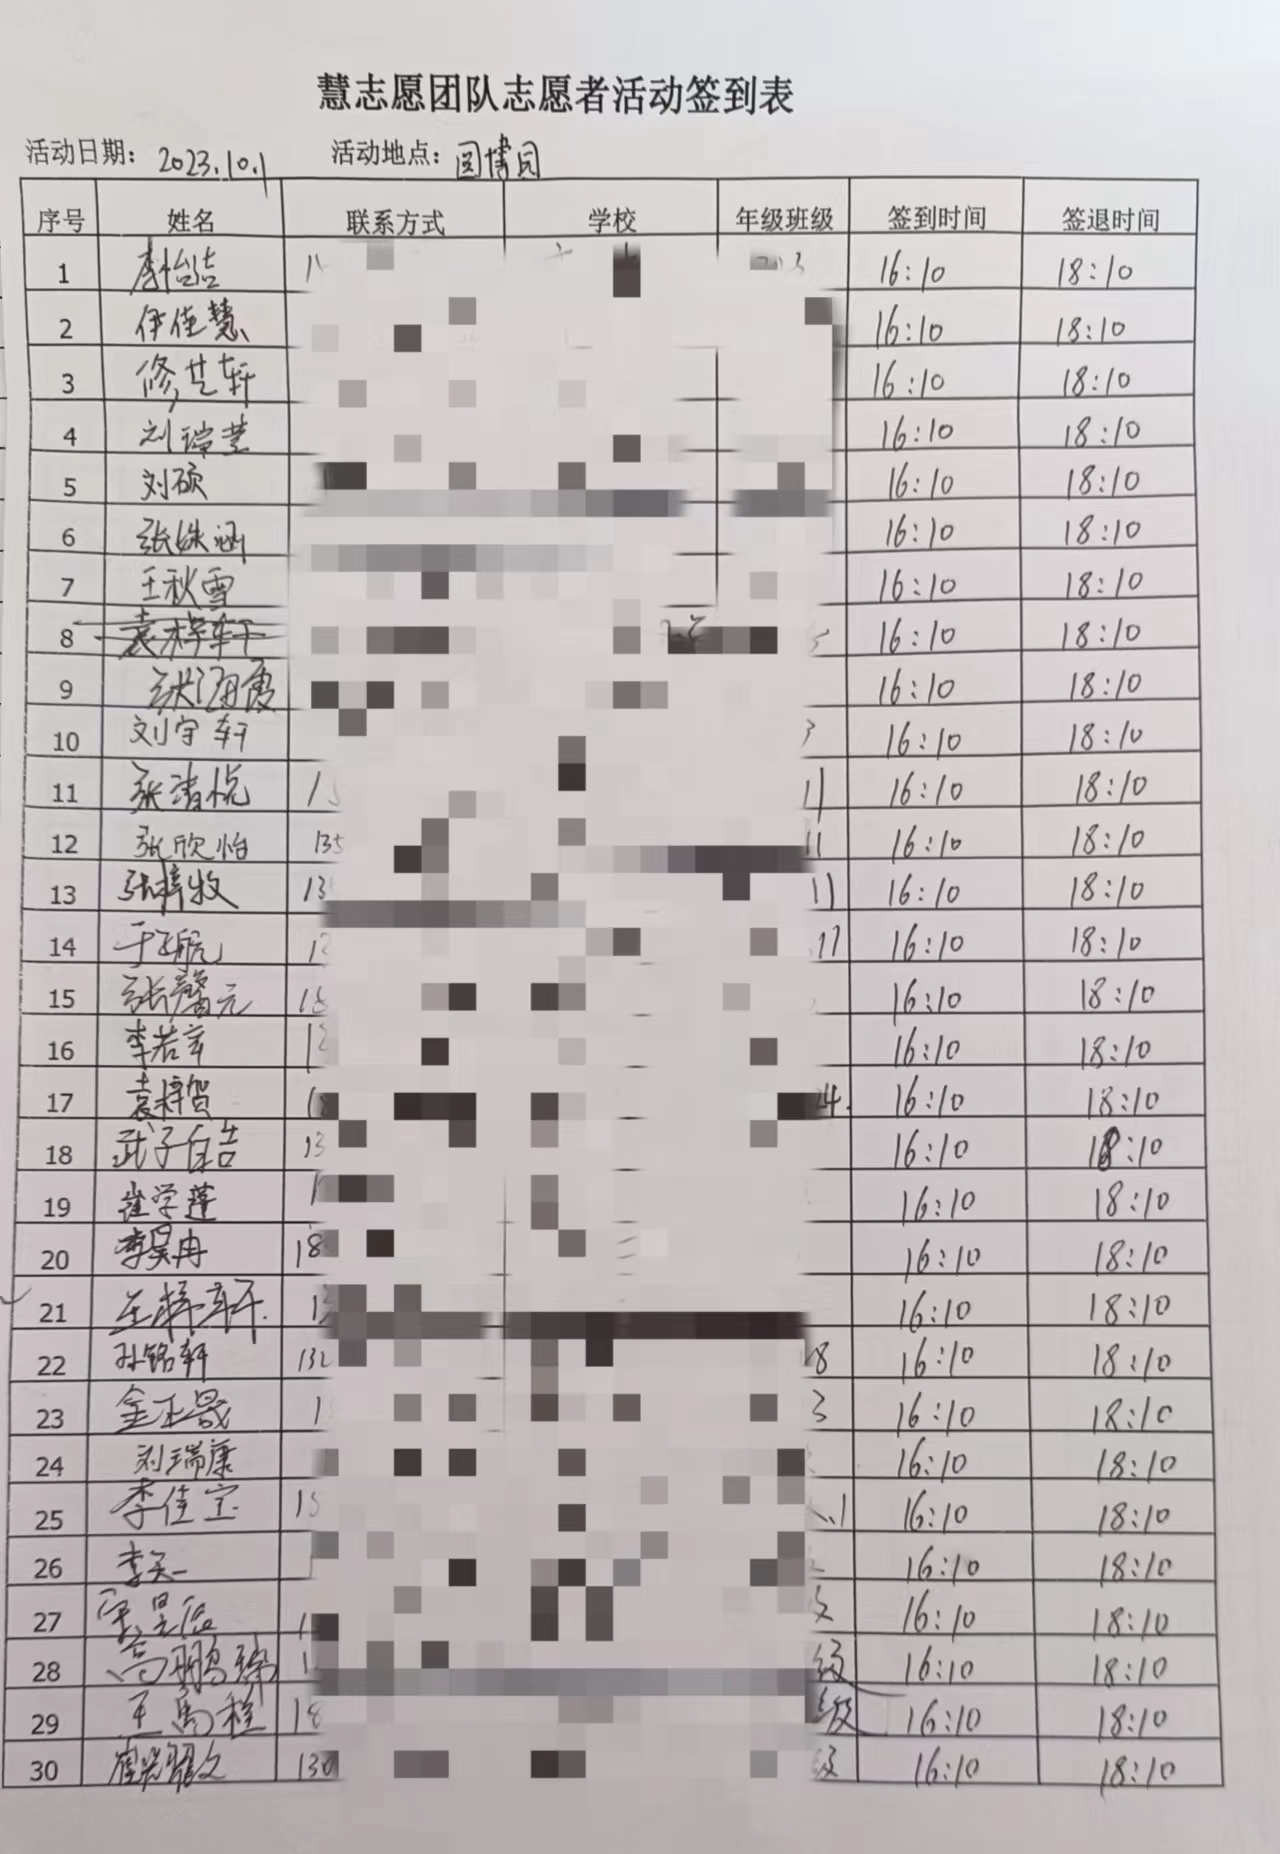 慧志愿团队志愿者活动签到表
活动日期: 2023.10.1 活动地点: 园博园
序号 姓名 联系方式 学校 年级班级 签到时间 签退时间
1 16:10 18:10
2 伊佳慧 16:10 18:10
3 修艺轩 16:10 18:10
4 刘瑞莹 16:10 18:10
5 刘硕 16:10 18:10
6 张姝涵 16:10 18:10
7 王秋雪 16:10 18:10
8 袁梓轩 16:10 18:10
9 张海霞 16:10 18:10
10 刘宇轩 16:10 18:10
11 张清悦 11 16:10 18:10
12 张欣怡 135 11 16:10 18:10
13 张梓牧 13 11 16:10 18:10
14 16:10 18:10
15 张馨元 16:10 18:10
16 16:10 18:10
17 袁梓贺 18 4. 16:10 18:10
18 武子皓 13 16:10 18:10
19 崔学莲 1 16:10 18:10
20 李昊冉 18 16:10 18:10
21 王梓轩 13 16:10 18:10
22 孙铭轩 132 8 16:10 18:10
23 金正晟 1 3 16:10 18:10
24 刘瑞康 16:10 18:10
25 李佳宝 15 .1 16:10 18:10
26 李天一 16:10 18:10
27 1 16:10 18:10
28 高鹏 级 16:10 18:10
29 王禹程 18 级 16:10 18:10
30 130 级 16:10 18:10